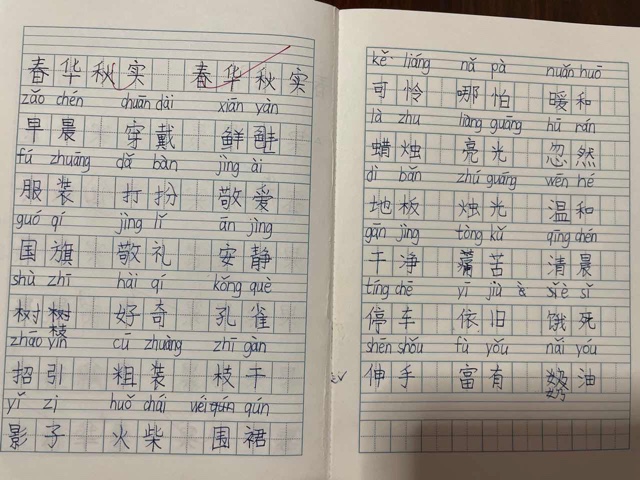 春华秋实 春华秋实
zǎo chén chuān dài xiān yàn
早晨 穿戴 鲜艳
fú zhuāng dǎ bàn jìng ài
服装 打扮 敬爱
guó qí jìng lǐ ān jìng
国旗 敬礼 安静
shù zhī hài qí kǒng què
树枝 好奇 孔雀
zhāo yǐn cū zhuàng zhī gàn
招引 粗装 枝干
yǐ zi huǒ chái wéi qún
影子 火柴 围裙
kě liáng nǎ pà nuǎn huō
可怜 哪怕 暖和
là zhu liàng guāng hū rán
蜡烛 亮光 忽然
dì bǎn zhú guāng wēn hé
地板 烛光 温和
gān jìng tòng kǔ qīng chén
干净 苦 清晨
tíng chē yī jiù sǐ
停车 依旧 饿死
shēn shǒu fù yǒu nǎi yóu
伸手 富有 奶油